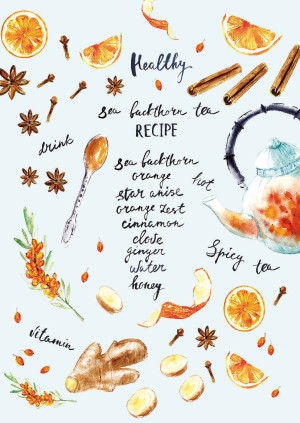 Healthy
sea backthorn tea
RECIPE
drink
sea backthorn
orange
hot
star anise
orange zest
cinnamon
clove
ginger
water
honey
Spicy
tea
vitamin